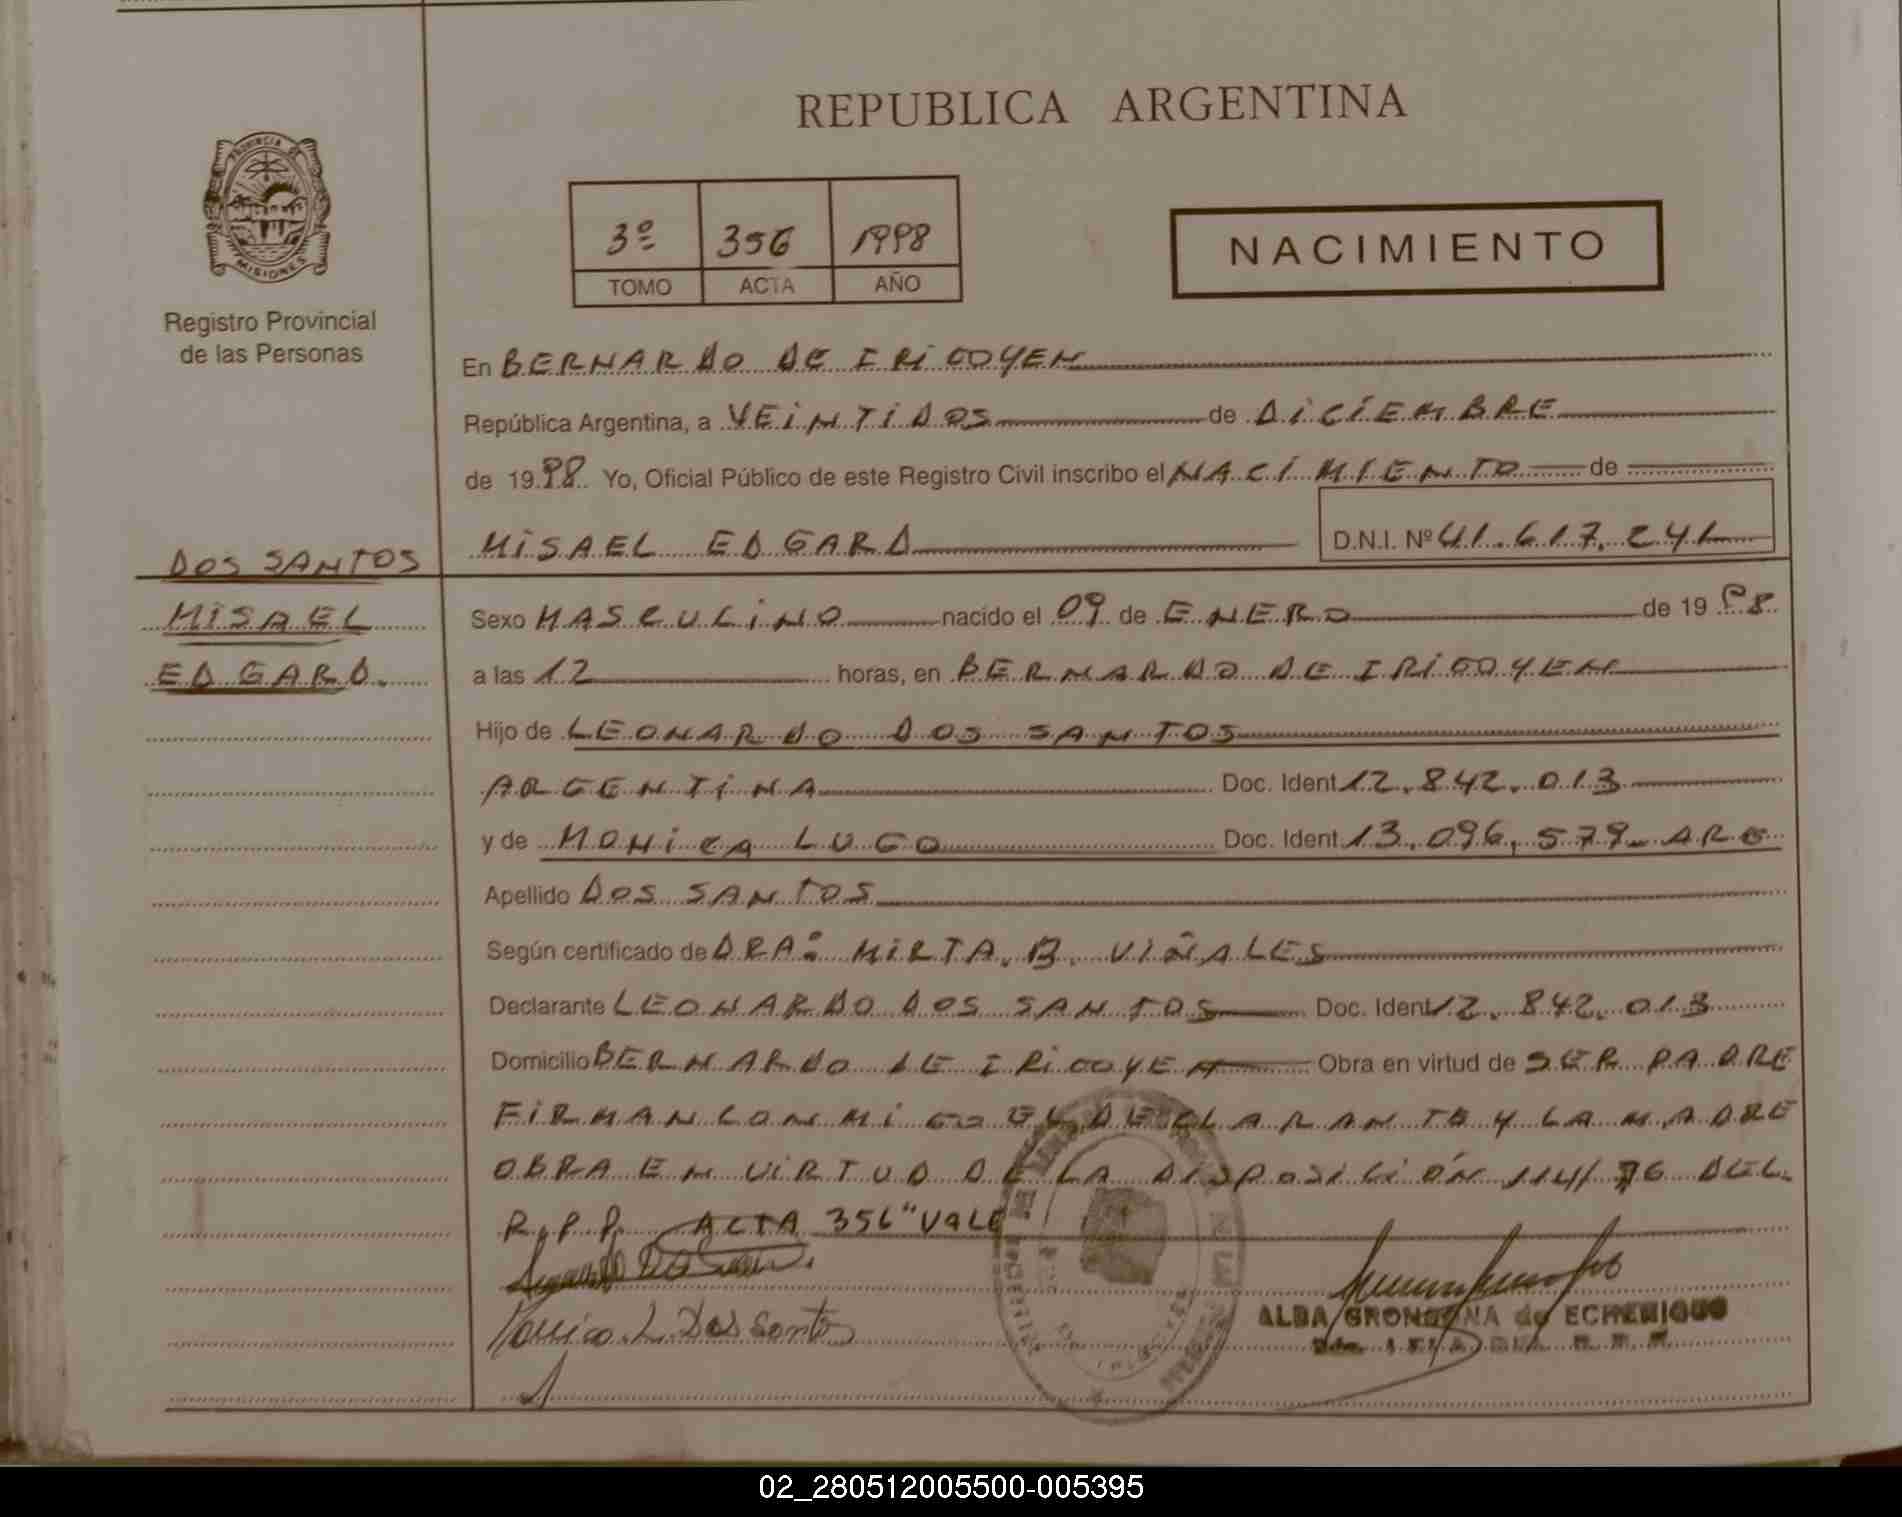 REPUBLICA ARGENTINA
PROVINCIA DE
MISIONES
Registro Provincial
de las Personas
3º 356 1998
TOMO ACTA AÑO
NACIMIENTO
En BERNARDO DE IRIGOYEN
República Argentina, a VEINTIDOS de DICIEMBRE
de 1998 Yo, Oficial Público de este Registro Civil inscribo el NACIMIENTO de
MISAEL EDGARD D.N.I. Nº 41.617.241
DOS SANTOS
MISAEL
EDGARD.
Sexo MASCULINO nacido el 09 de ENERO de 1998
a las 12 horas, en BERNARDO DE IRIGOYEN
Hijo de LEONARDO DOS SANTOS
ARGENTINA Doc. Ident 12.842.013
y de MONICA LUGO Doc. Ident 13.096.579 ARG
Apellido DOS SANTOS
Según certificado de DRA: MIRTA. B. VIÑALES
Declarante LEONARDO DOS SANTOS Doc. Ident 12.842.013
Domicilio BERNARDO DE IRIGOYEN Obra en virtud de SER PADRE
FIRMAN CONMIGO EL DECLARANTE Y LA MADRE
OBRA EN VIRTUD DE LA DISPOSICIÓN 114/76 DEL
R.P.P. ACTA 356" VALE
Dos Santos
ALBA GRONDONA de ECHENIQUE
02_280512005500-005395